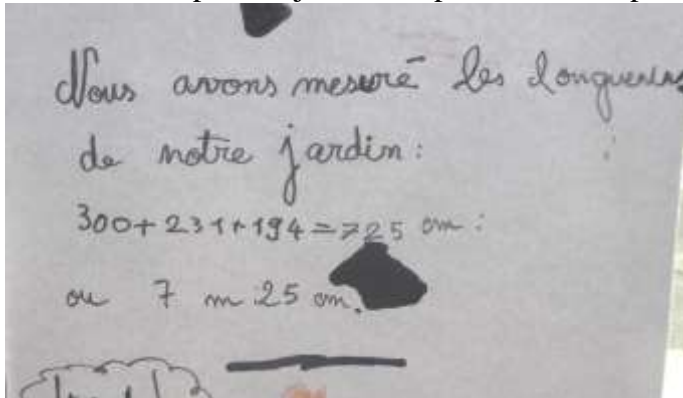 Nous avons mesuré les longueurs
de notre jardin :
300 + 231 + 194 = 725 cm :
ou 7 m 25 cm.